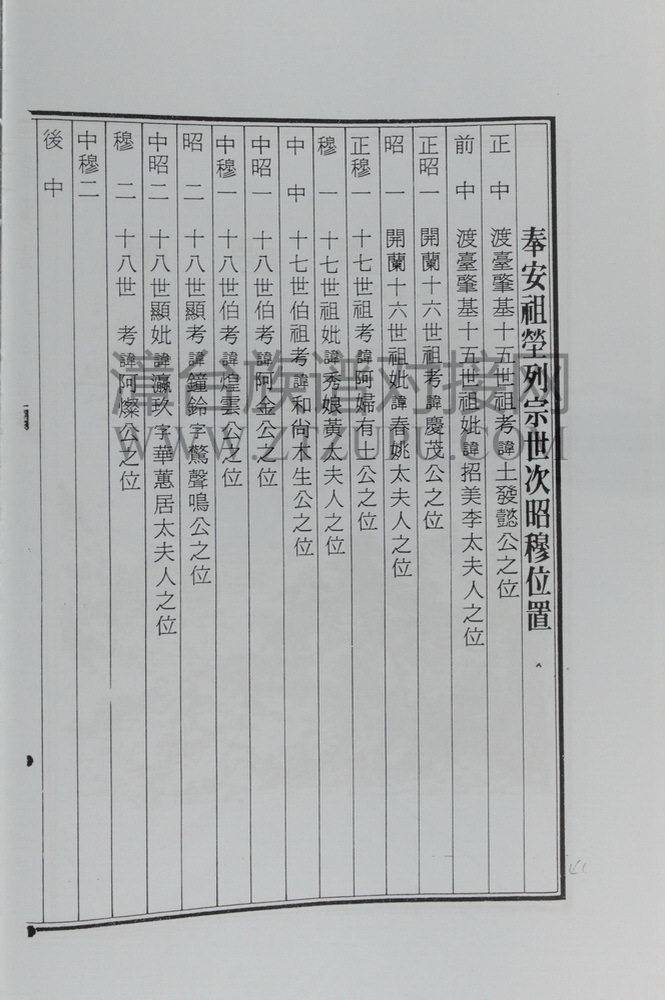 奉安祖塋列宗世次昭穆位置
正中 渡臺肇基十五世祖考諱士發懿公之位
前中 渡臺肇基十五世祖妣諱招美李太夫人之位
正昭一 開蘭十六世祖考諱慶茂公之位
昭一 開蘭十六世祖妣諱春姚太夫人之位
正穆一 十七世祖考諱阿婦有土公之位
穆一 十七世祖妣諱秀娘黃太夫人之位
中中 十七世伯祖考諱和尚木生公之位
中昭一 十八世伯考諱阿金公之位
中穆一 十八世伯考諱煌雲公之位
昭二 十八世顯考諱鐘鈴字驚聲鳴公之位
中昭二 十八世顯妣諱瀛玖字華蕙居太夫人之位
穆二 十八世 考諱阿燦公之位
中穆二
後中
漳台族谱对接网
WWW.ZTZUPU.COM